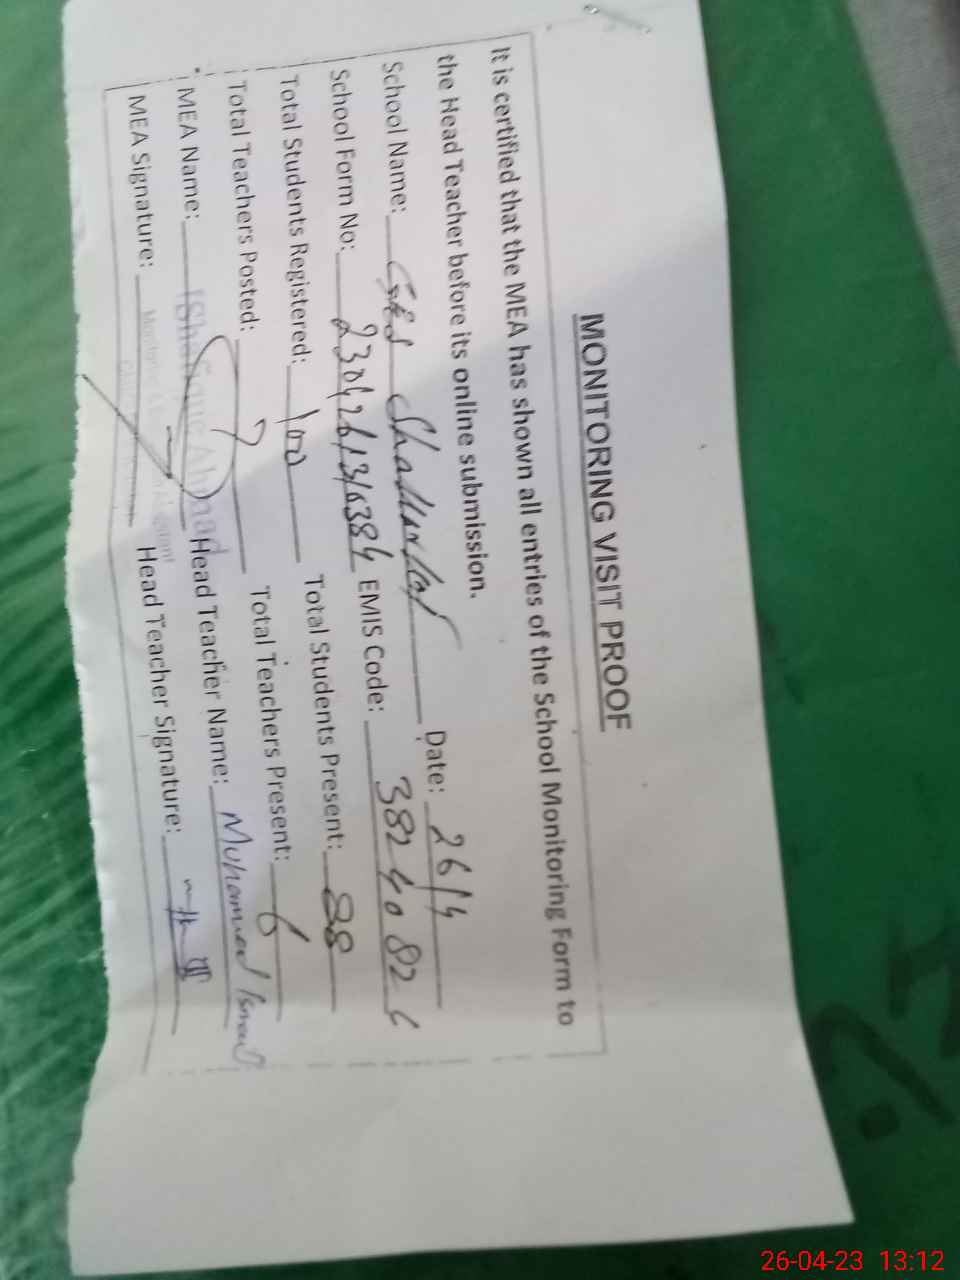 MONITORING VISIT PROOF
It is certified that the MEA has shown all entries of the School Monitoring Form to
the Head Teacher before its online submission.
School Name: Date: 26/4
School Form No: EMIS Code: 3824082
Total Students Registered: 100 Total Students Present: 88
Total Teachers Posted: 7 Total Teachers Present: 6
MEA Name: Head Teacher Name: Muhammad Ismail
MEA Signature: Head Teacher Signature:
26-04-23 13:12